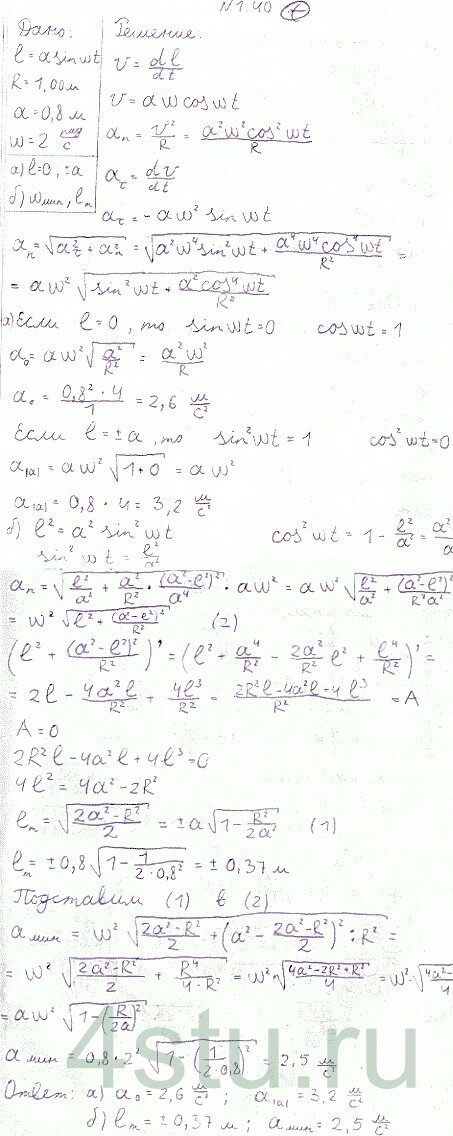 N 1.40 (+)
Дано:
l = a sin wt
R = 1,00 м
a = 0,8 м
w = 2 рад/с
а) l=0, ±a
б) w мин, l_m
Решение:
v = dl/dt
v = a w cos wt
a_n = v²/R = a²w²cos²wt/R
a_τ = dv/dt
a_τ = -a w² sin wt
a_n = √(a²_τ + a²_n) = √(a²w⁴sin²wt + a⁴w⁴cos⁴wt/R²) =
= a w² √(sin²wt + a²cos⁴wt/R²)
а) Если l = 0, то sin wt = 0 cos wt = 1
a₀ = a w² √(a²/R²) = a²w²/R
a₀ = 0,8² · 4/1 = 2,6 м/с²
Если l = ±a, то sin²wt = 1 cos²wt = 0
a|a| = a w² √(1+0) = a w²
a|a| = 0,8 · 4 = 3,2 м/с²
б) l² = a² sin² wt cos² wt = 1 - l²/a² = a²
sin² wt = l²/a²
a_n = √(l²/a² + a²/R² · (a²-l²)²/a⁴) · a w² = a w² √(l²/a² + (a²-l²)²/R²a²)
= w² √(l² + (a²-l²)²/R²) (2)
(l² + (a²-l²)²/R²)' = (l² + a⁴/R² - 2a²/R² l² + l⁴/R²)' =
= 2l - 4a²l/R² + 4l³/R² = 2R²l-4a²l+4l³/R² = A
A = 0
2R²l - 4a²l + 4l³ = 0
4l² = 4a² - 2R²
l_m = √(2a²-R²/2) = ±a √(1 - R²/2a²) (1)
l_m = ±0,8 √(1 - 1/2·0,8²) = ±0,37 м
Подставим (1) в (2)
a мин = w² √(2a²-R²/2 + (a² - 2a²-R²/2)² : R²) =
= w² √(2a²-R²/2 + R⁴/4·R²) = w² √(4a²-2R²+R²/4) = w² · √(4a²-
= a w² √(1-(R/2a)²)
a мин = 0,8 · 2² √(1-(1/2·0,8)²) = 2,5 м/с²
Ответ: а) a₀ = 2,6 м/с² ; a|a| = 3,2 м/с²
б) l_m = ± 0,37 м ; a мин = 2,5 м/с²
4stu.ru